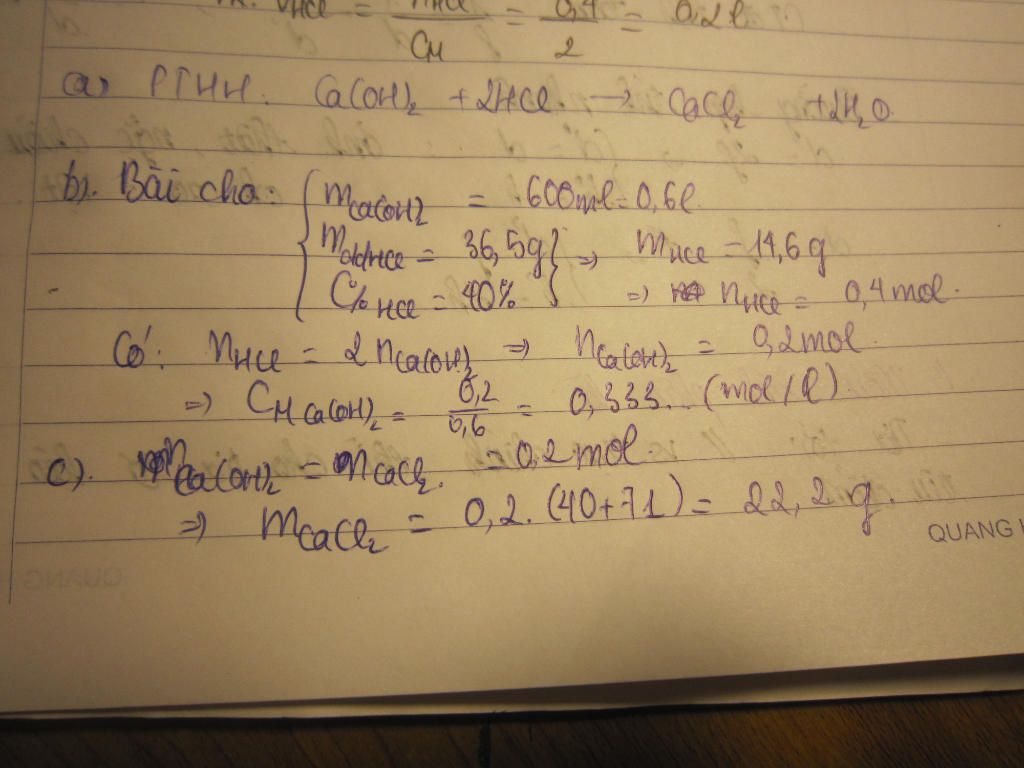 V_HCl = n_HCl / C_M = 0,4 / 2 = 0,2 l
a) PTHH: Ca(OH)₂ + 2HCl → CaCl₂ + 2H₂O
b). Bài cho: { m_Ca(OH)₂ = 600ml = 0,6l
m_ddHCl = 36,5g } ⇒ m_HCl = 14,6g
C%_HCl = 40% ⇒ n_HCl = 0,4 mol.
Có: n_HCl = 2 n_Ca(OH)₂ ⇒ n_Ca(OH)₂ = 0,2mol.
⇒ C_M Ca(OH)₂ = 0,2 / 0,6 = 0,333... (mol/l).
c). n_Ca(OH)₂ = n_CaCl₂ = 0,2 mol.
⇒ m_CaCl₂ = 0,2.(40+71) = 22,2 g.
QUANG